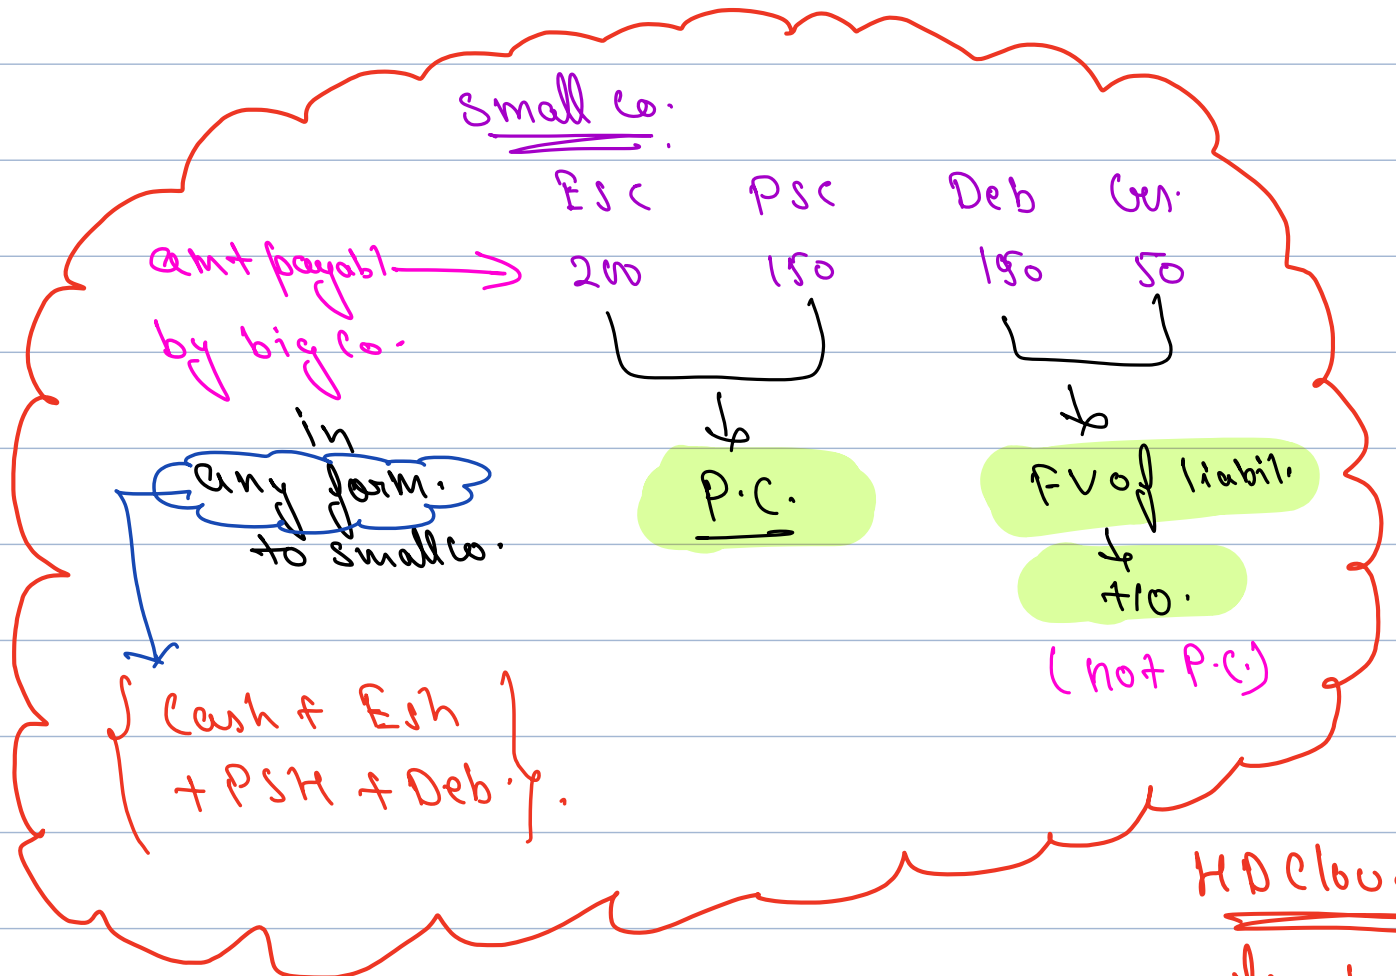 Small Co.
ESC PSC Deb Crs.
amt payabl 200 150 150 50
by big Co.
in
any form.
to small co.
P.C.
FV of liabil.
T/O.
(not P.C.)
Cash + Esh
+ PSH + Deb.
HD Clou